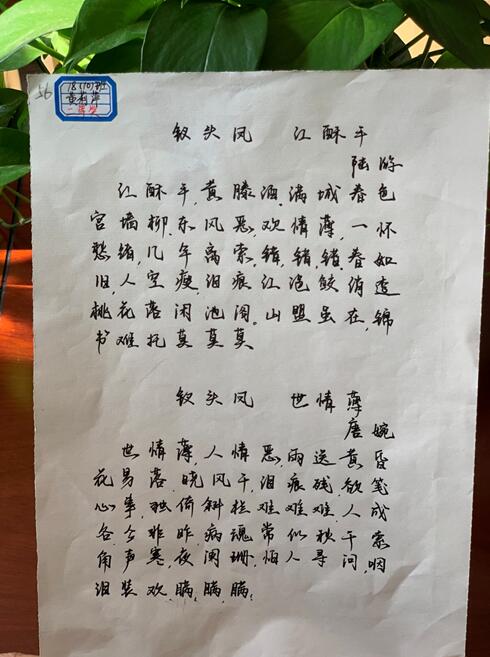 56
钗头凤 江酥手
陆游
江酥手,黄滕酒,满城春色
宫墙柳,东风恶,欢情薄,一怀
愁绪,几年离索,错,错,错,春如
旧人空瘦,泪痕红浥鲛绡透
桃花落闲池阁。山盟虽在,锦
书难托莫莫莫
钗头凤 世情薄
唐婉
世情薄,人情恶,雨送黄昏
花易落,晓风干,泪痕残,欲笺
心事,独倚斜栏难难难,人成
各今非昨,病魂常似秋千索
角声寒,夜阑珊,怕人寻问,咽
泪装欢,瞒,瞒,瞒。